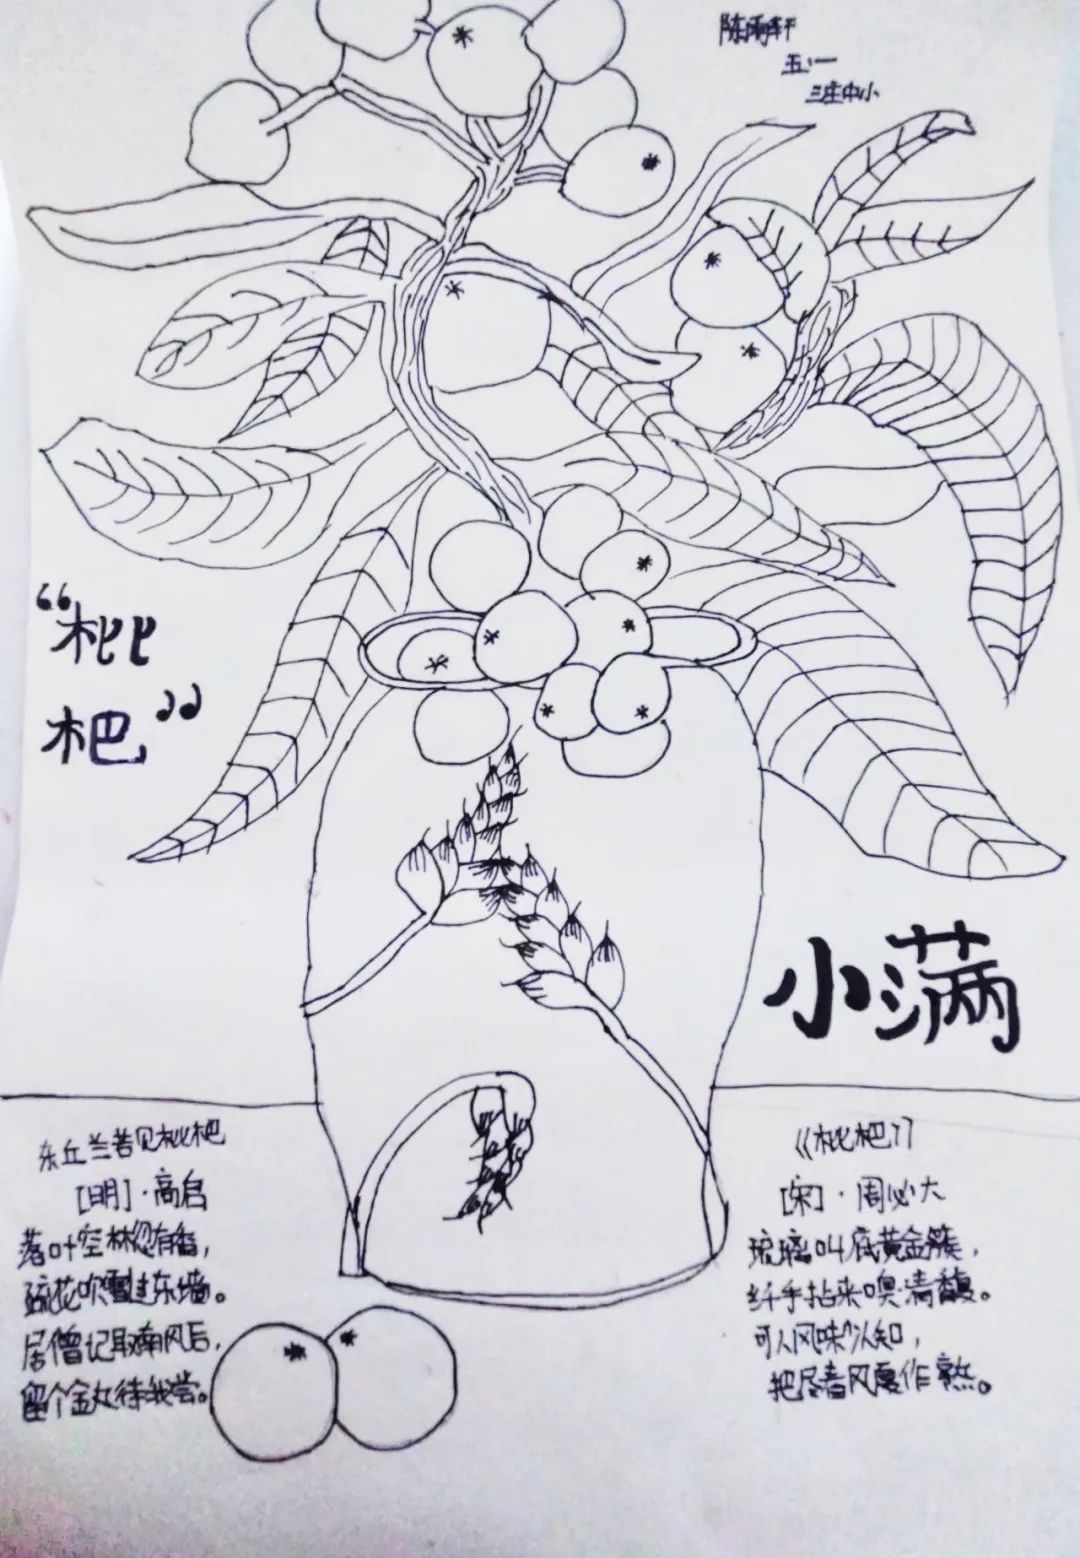 陈雨轩
五:一
三庄中小
“枇
杷”
小满
东丘兰若见枇杷
[明]·高启
落叶空林忽有香,
疏花吹雪过东墙。
居僧记取南风后,
留个金丸待我尝。
《枇杷》
[宋]·周必大
琉璃叫底黄金簇,
纤手拈来嗅清馥。
可人风味少人知,
把尽春风夏作熟。